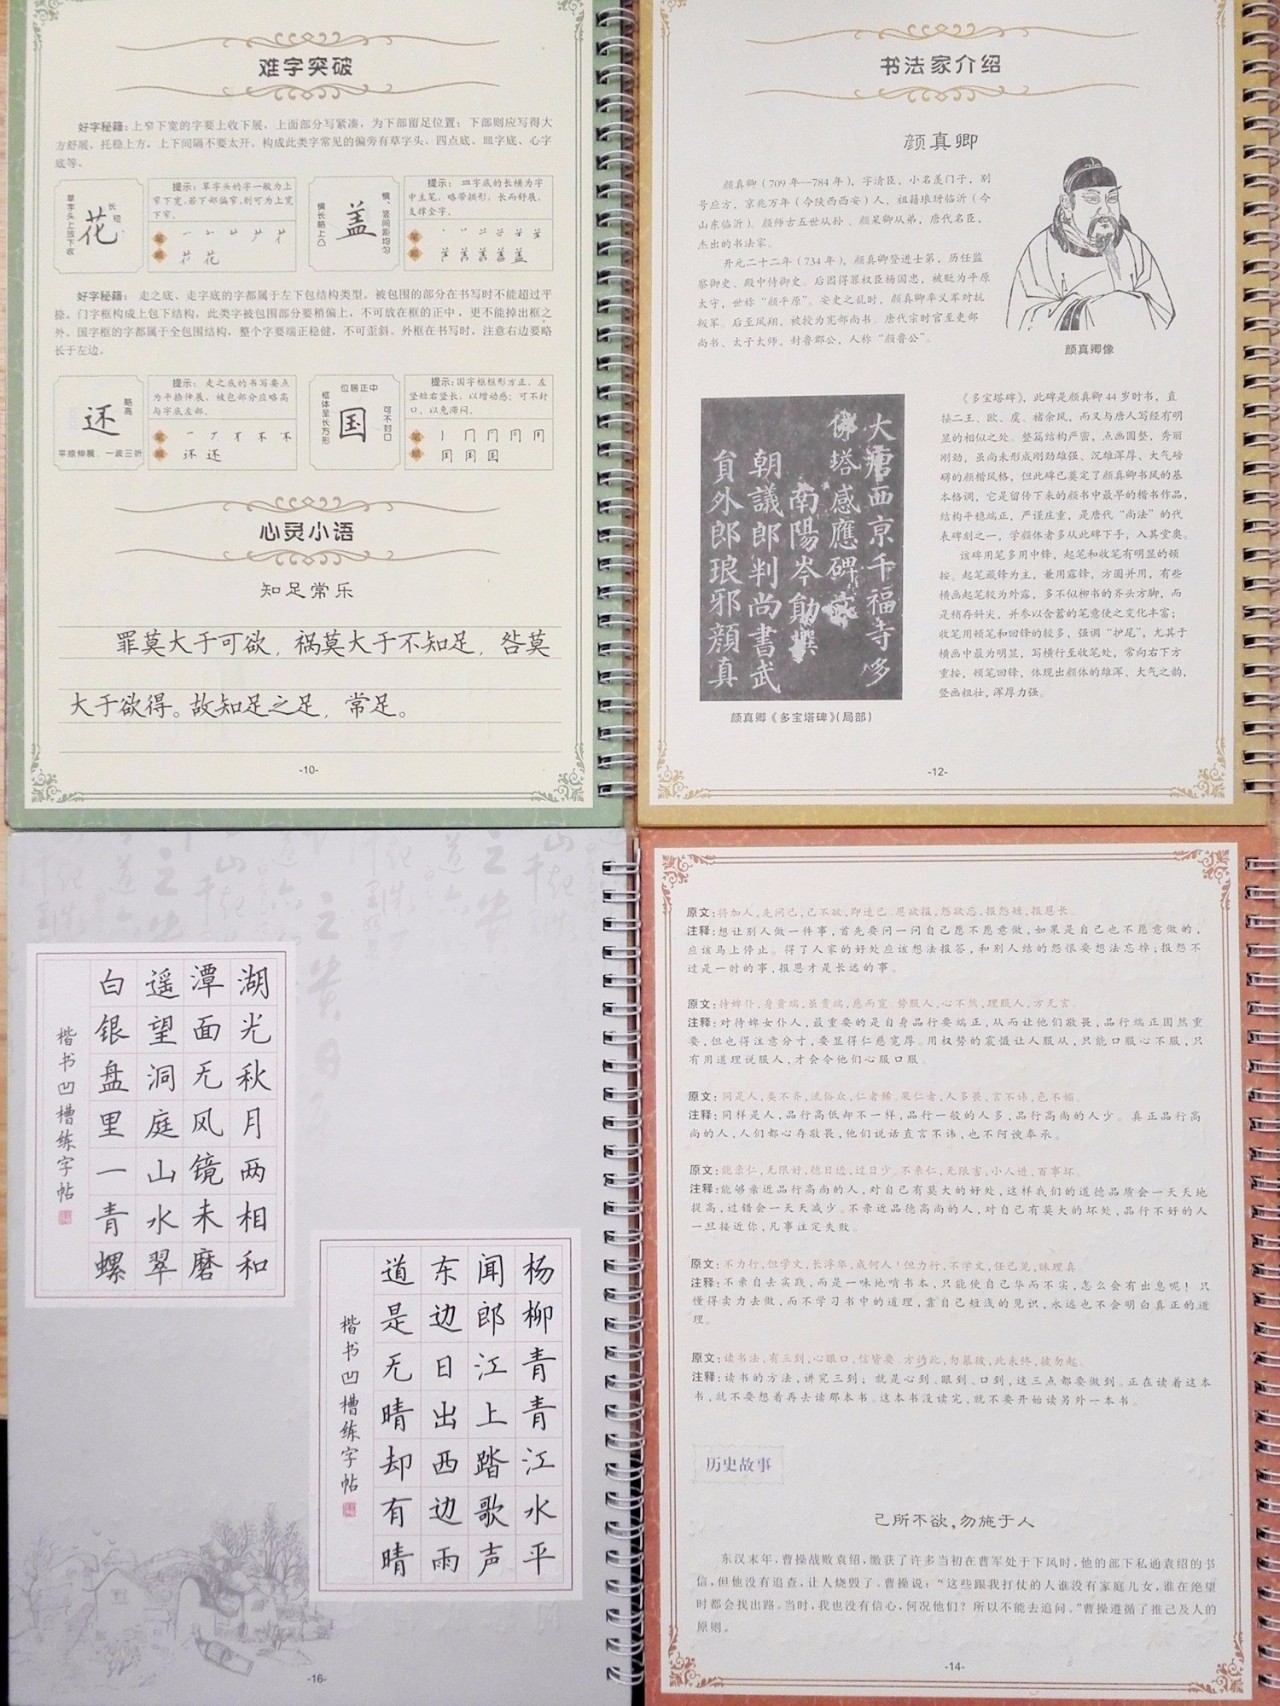 难字突破
好字秘籍：上窄下宽的字要上收下展，上面部分写紧凑，为下部留足位置；下部则应写得大
方舒展，托稳上方，上下间隔不要太开。构成此类字常见的偏旁有草字头、四点底、皿字底、心字
底等。
草字头上放下收
花
长 短
提示：草字头的字一般为上
窄下宽，若下部偏窄，则可为上宽
下窄。
笔顺
花
横长略上凸
盖
横、竖间距均匀
提示：皿字底的长横为字
中主笔，略带拱形，长而舒展，
支撑全字。
笔顺
盖
好字秘籍：走之底、走字底的字都属于左下包结构类型，被包围的部分在书写时不能超过平
捺。门字框构成上包下结构，此类字被包围部分要稍偏上，不可放在框的正中，更不能掉出框之
外。国字框的字都属于全包围结构，整个字要端正稳健，不可歪斜。外框在书写时，注意右边要略
长于左边。
还
略高
平捺伸展，一波三折
提示：走之底的书写要点
为平捺伸展，被包部分应略高
与字底左部。
笔顺
还 还
位居正中
框体呈长方形
国
可不封口
提示：国字框框形方正，左
竖短右竖长，以增动感；可不封
口，以免滞闷。
笔顺
国
心灵小语
知足常乐
罪莫大于可欲，祸莫大于不知足，咎莫
大于欲得。故知足之足，常足。
-10-
书法家介绍
颜真卿
颜真卿（709年—784年），字清臣，小名羡门子，别
号应方，京兆万年（今陕西西安）人，祖籍琅玡临沂（今
山东临沂）。颜师古五世从孙、颜杲卿从弟，唐代名臣，
杰出的书法家。
开元二十二年（734年），颜真卿登进士第，历任监
察御史、殿中侍御史。后因得罪权臣杨国忠，被贬为平原
太守，世称“颜平原”。安史之乱时，颜真卿率义军对抗
叛军。后至凤翔，被授为宪部尚书。唐代宗时官至吏部
尚书、太子太师，封鲁郡公，人称“颜鲁公”。
颜真卿像
大唐西京千福寺多
佛塔感應碑
南陽岑勛撰
朝議郎判尚書武
員外郎琅邪顏真
颜真卿《多宝塔碑》（局部）
《多宝塔碑》，此碑是颜真卿44岁时书，直
接二王、欧、虞、褚余风，而又与唐人写经有明
显的相似之处。整篇结构严密，点画圆整，秀丽
刚劲，虽尚未形成刚劲雄强、沉雄浑厚、大气磅
礴的颜楷风格，但此碑已奠定了颜真卿书风的基
本格调，它是留传下来的颜书中最早的楷书作品，
结构平稳端正，严谨庄重，是唐代“尚法”的代
表碑刻之一，学颜体者多从此碑下手，入其堂奥。
该碑用笔多用中锋，起笔和收笔有明显的顿
按。起笔藏锋为主，兼用露锋，方圆并用，有些
横画起笔较为外露，多不似柳书的齐头方脚，而
是稍存斜尖，并参以含蓄的笔意使之变化丰富；
收笔用顿笔和回锋的较多，强调“护尾”，尤其于
横画中最为明显，写横行至收笔处，常向右下方
重按，顿笔回锋，体现出颜体的雄浑、大气之韵，
竖画粗壮，浑厚力强。
-12-
湖光秋月两相和
潭面无风镜未磨
遥望洞庭山水翠
白银盘里一青螺
楷书凹槽练字帖
杨柳青青江水平
闻郎江上踏歌声
东边日出西边雨
道是无晴却有晴
楷书凹槽练字帖
-16-
原文：将加人，先问己，己不欲，即速已。恩欲报，怨欲忘，报怨短，报恩长。
注释：想让别人做一件事，首先要问一问自己愿不愿意做，如果是自己也不愿意做的，
应该马上停止。得了人家的好处应该想法报答，和别人结的怨恨要想法忘掉；报怨不
过是一时的事，报恩才是长远的事。
原文：待婢仆，身贵端，虽贵端，慈而宽。势服人，心不然，理服人，方无言。
注释：对待婢女仆人，最重要的是自身品行要端正，从而让他们敬畏，品行端正固然重
要，但也得注意分寸，要显得仁慈宽厚。用权势的震慑让人服从，只能口服心不服，只
有用道理说服人，才会令他们心服口服。
原文：同是人，类不齐，流俗众，仁者稀。果仁者，人多畏，言不讳，色不媚。
注释：同样是人，品行高低却不一样，品行一般的人多，品行高尚的人少。真正品行高
尚的人，人们都心存敬畏，他们说话直言不讳，也不阿谀奉承。
原文：能亲仁，无限好，德日进，过日少。不亲仁，无限害，小人进，百事坏。
注释：能够亲近品行高尚的人，对自己有莫大的好处，这样我们的道德品质会一天天地
提高，过错会一天天减少。不亲近品德高尚的人，对自己有莫大的坏处，品行不好的人
一旦接近你，凡事注定失败。
原文：不力行，但学文，长浮华，成何人！但力行，不学文，任己见，昧理真。
注释：不亲自去实践，而是一味地啃书本，只能使自己华而不实，怎么会有出息呢！只
懂得卖力去做，而不学习书中的道理，靠自己短浅的见识，永远也不会明白真正的道
理。
原文：读书法，有三到，心眼口，信皆要。方读此，勿慕彼，此未终，彼勿起。
注释：读书的方法，讲究三到；就是心到、眼到、口到，这三点都要做到。正在读着这本
书，就不要想着再去读那本书。这本书没读完，就不要开始读另外一本书。
历史故事
己所不欲，勿施于人
东汉末年，曹操战败袁绍，缴获了许多当初在曹军处于下风时，他的部下私通袁绍的书
信，但他没有追查，让人烧毁了。曹操说：“这些跟我打仗的人谁没有家庭儿女，谁在绝望
时都会找出路。当时，我也没有信心，何况他们？所以不能去追问。”曹操遵循了推己及人的
原则。
-14-